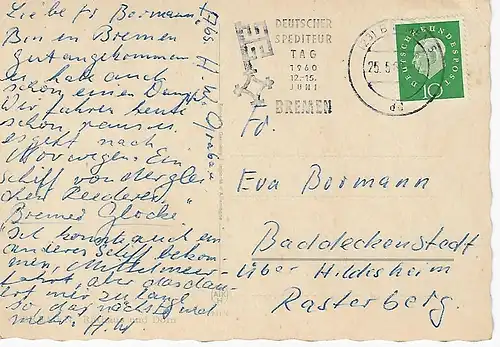 Liebe Fr Bormann!
Bin in Bremen
gut angekommen
hatte auch
schon einen Dampf
Wir fahren heute
schon raus
es geht nach
Norwegen. Ein
schiff von der glei
chen Reederei,
"Bremer Glocke"
konnte auch ein
anderes Schiff bekom
men, Mittelmeer-
fahrt, aber das dau-
ert mir zu lange
so, das nächste mal
mehr.
Abs. H. W.
DEUTSCHER
SPEDITEUR
TAG
1960
12.-15.
JUNI
BREMEN
25. 5.
DEUTSCHE BUNDESPOST
10
Fr.
Eva Bormann
Baddeckenstedt
über Hildesheim
Rasterberg.
Rathaus und Dom